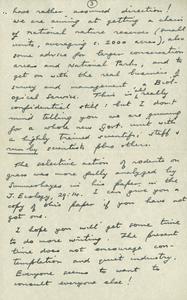 3
have rather assumed direction!
We are aiming at getting a chain
of national nature reserves (small
units, averaging c. 2000 acres), also
some advice on larger conservation
areas and National Parks, and to
get on with the real business of
survey and management, by a Biol-
ogical Service. This is really
confidential still: but I don't
mind telling you we are going
for a whole new Govt. unit with
a highly trained scientific staff
run by scientists plus others.
The selective action of rodents on
grass was more fully analysed by
Summerhayes in his paper in the
J. Ecology, 29:14. I can give you a
copy of this paper if you have not
got one.
I hope you will get some time
to do more writing. The present
time does not encourage con-
templation and quiet industry.
Everyone seems to want to
consult everyone else!